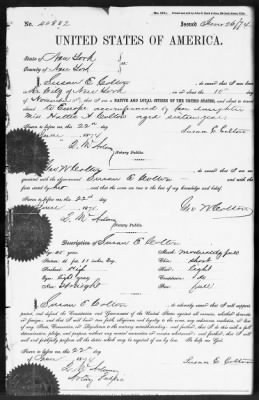 No. 40882 Issued June 26/74
UNITED STATES OF AMERICA.
State of New York
County of New York
I, Susan E Colton do swear that I was born
in City of New York on or about the 10th day
of November, that I am a NATIVE AND LOYAL CITIZEN OF THE UNITED STATES, and about to travel
to Europe accompanied by her daughter
Miss Hattie A Colton aged sixteen years
Sworn to before me this 22nd day
of June 1874 Susan E Colton
Notary Public.
Geo W Colton
acquainted with the above named Susan E Colton and with the
facts stated by her and that the same are true to the best of my knowledge and belief.
Sworn to before me this 22nd day
of June 1874 Geo W Colton
Notary Public.
Description of Susan E Colton
Age: years Mouth: moderately full
Stature: feet inches, Eng. Chin: short
Forehead: High Hair: light
Eyes: light grey Complexion:
Nose: straight Face: full
I, Susan E Colton do solemnly swear that I will support,
protect, and defend the Constitution and Government of the United States against all enemies, whether domestic
or foreign; and that I will bear true faith, allegiance, and loyalty to the same, any ordinance, resolution, or law
of any State, Convention, or Legislature to the contrary notwithstanding; and further, that I do this with a full
determination, pledge, and purpose, without any mental reservation or evasion whatsoever; and further, that I will
well and faithfully perform all the duties which may be required of me by law. So help me God.
Sworn to before me this 22 day
of June 1874 Susan E Colton
Notary Public